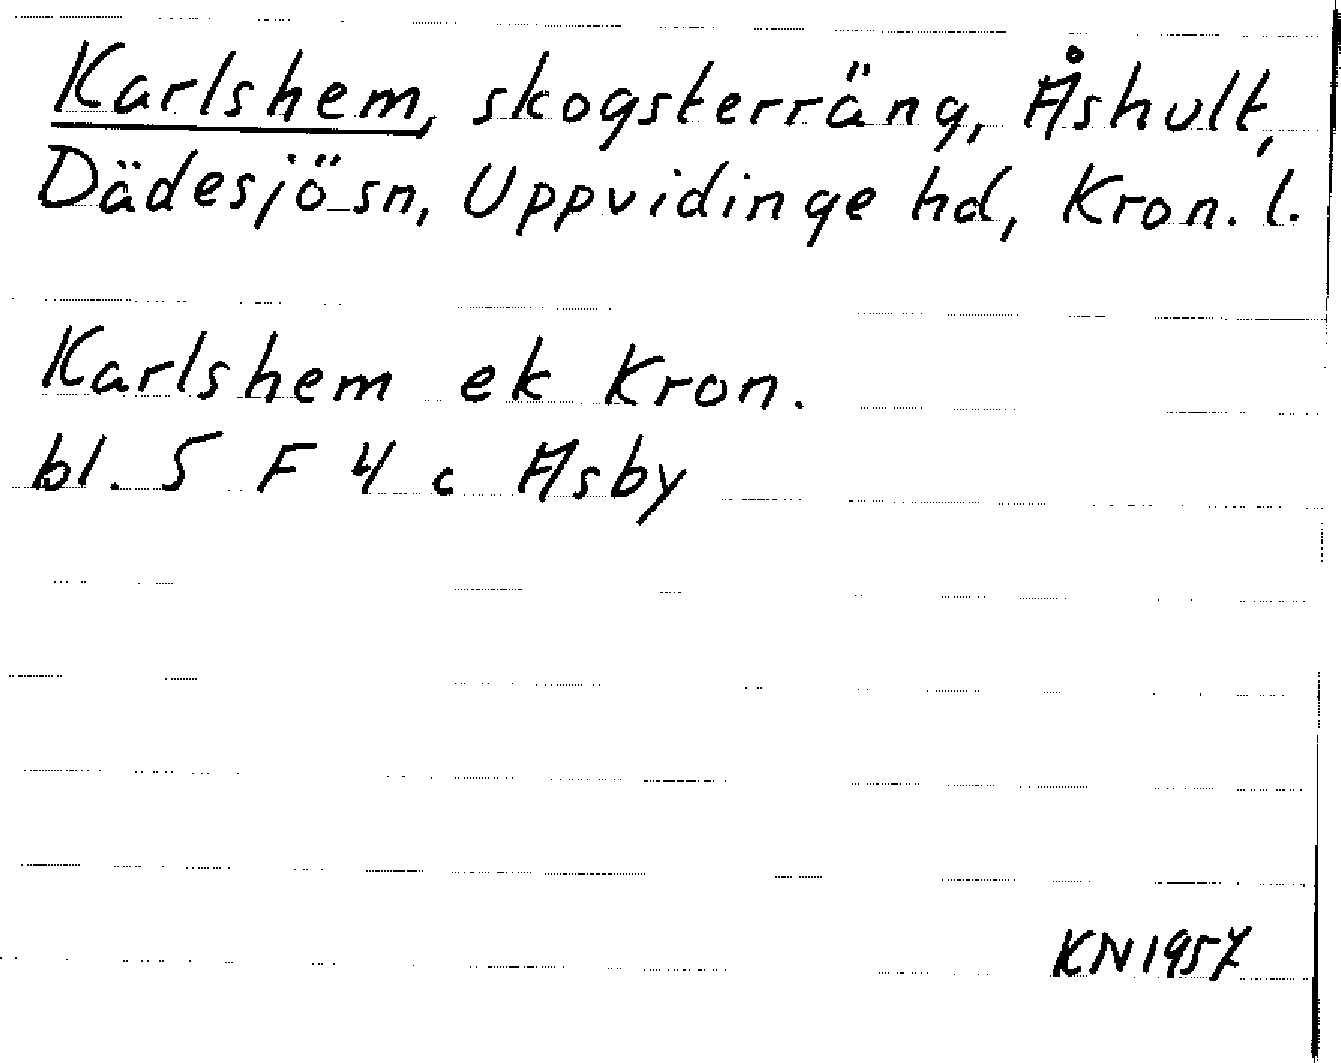 Karlshem, skogsterräng, Åshult,
Dädesjö sn, Uppvidinge hd, Kron. l.
Karlshem ek Kron.
bl. 5 F 4 c Asby
KN 1957